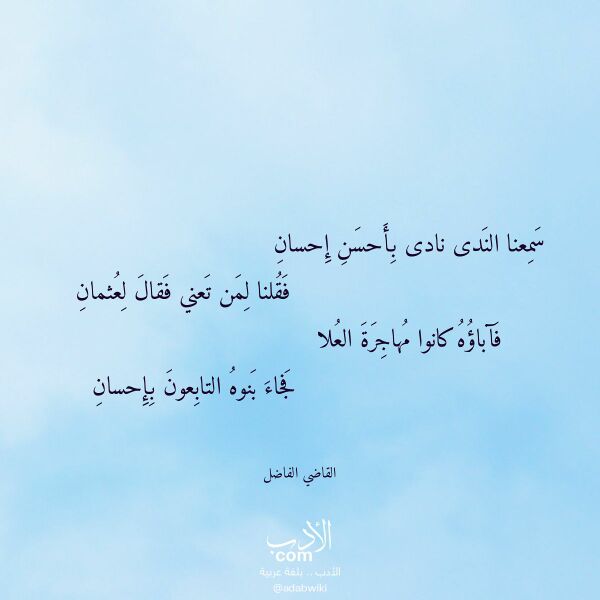 سَمِعنا النَدى نادى بِأَحسَنِ إِحسانِ
فَقُلنا لِمَن تَعني فَقالَ لِعُثمانِ
فَآباؤُهُ كانوا مُهاجِرَةَ العُلا
فَجاءَ بَنوهُ التابِعونَ بِإِحسانِ
القاضي الفاضل
الأدب
.com
الأدب .. بلغة عربية
@adabwiki